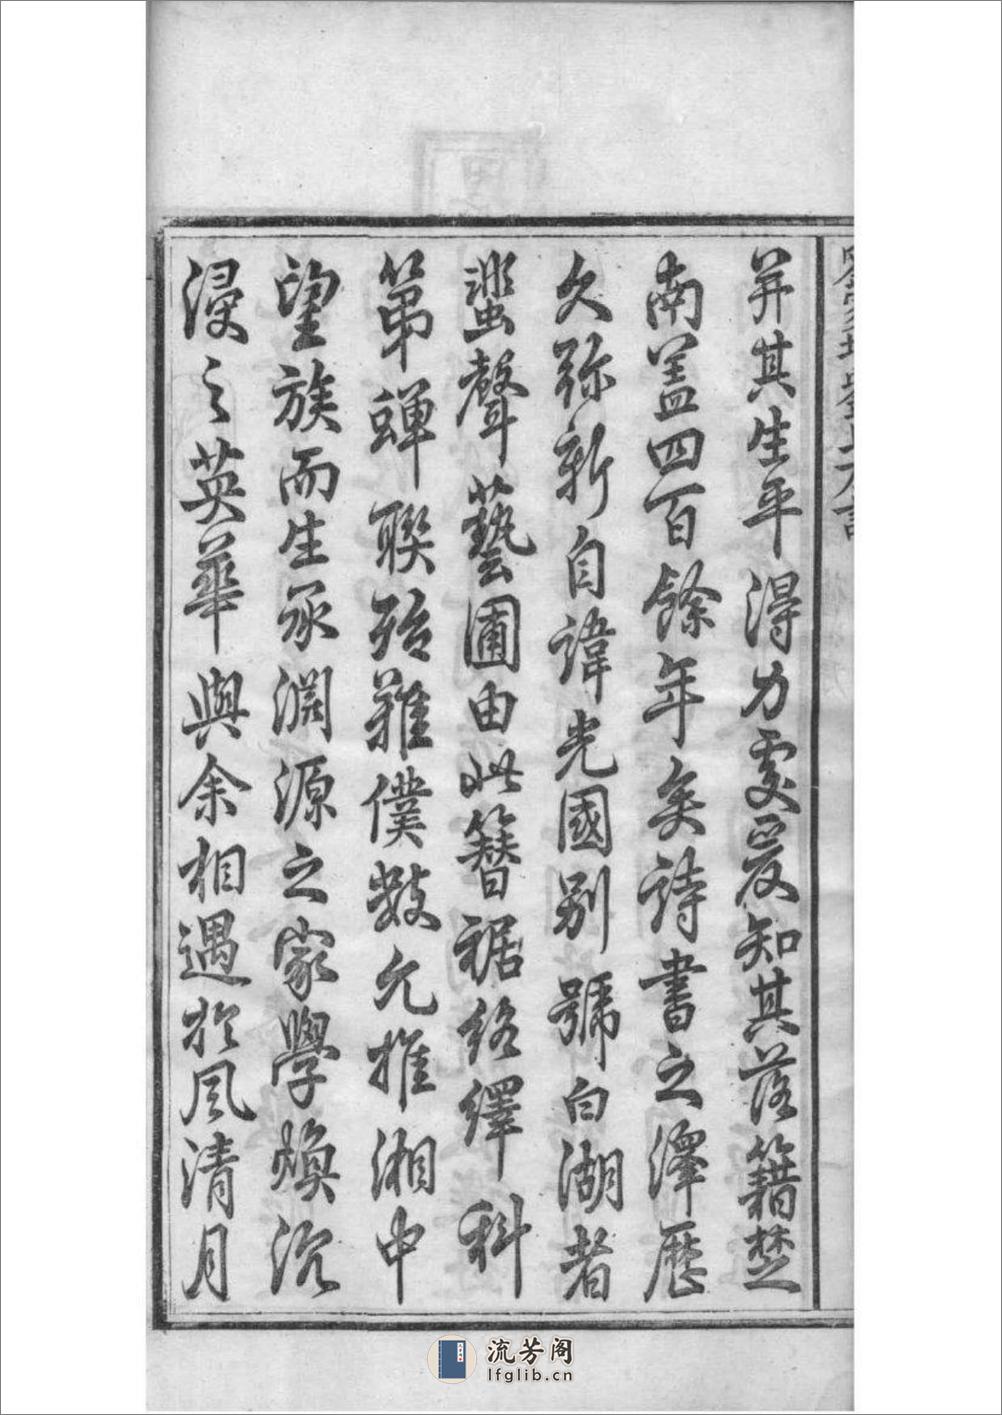 并其生平得力處爰知其落籍楚
南盖四百餘年矣詩書之澤歷
久弥新自諱光國别號白湖者
蜚聲藝圃由此簪裾絡繹科
第蟬聯殆難僕數允推湘中
望族而生承淵源之家學煥沉
浸之英華與余相遇於風清月
流芳阁
lfglib.cn